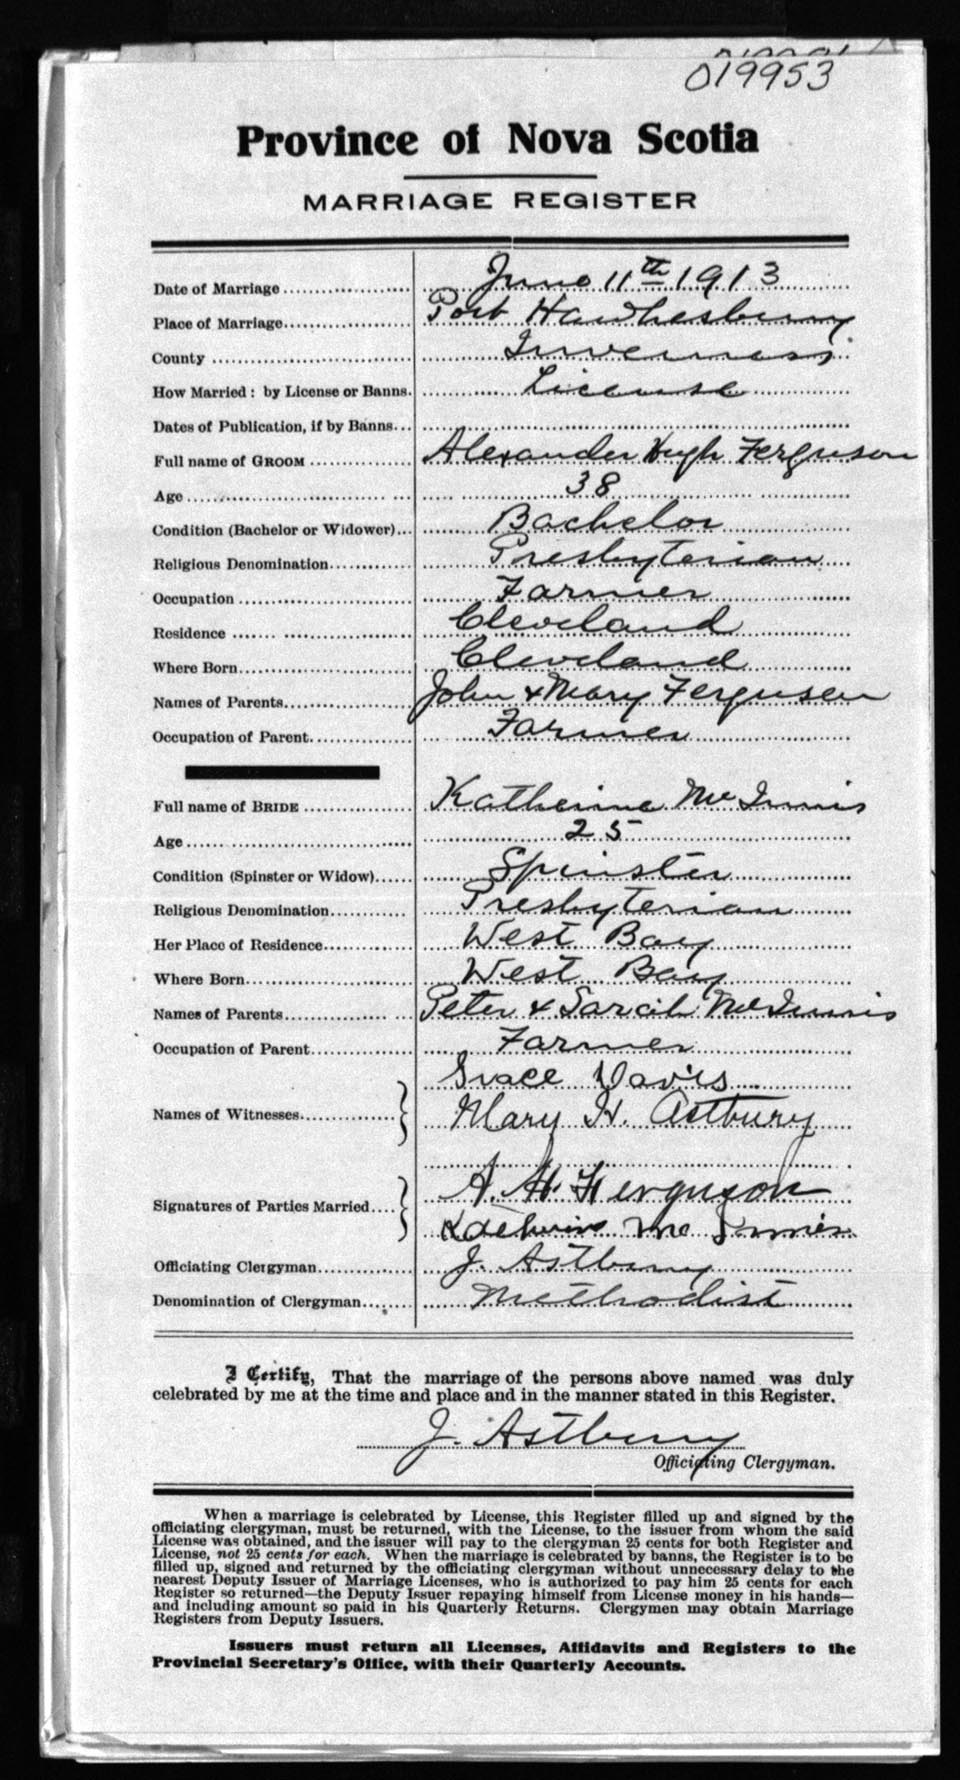 019953
Province of Nova Scotia
MARRIAGE REGISTER
Date of Marriage June 11th 1913
Place of Marriage Port Hawkesbury
County Inverness
How Married: by License or Banns. License
Dates of Publication, if by Banns
Full name of GROOM Alexander Hugh Ferguson
Age 38
Condition (Bachelor or Widower) Bachelor
Religious Denomination Presbyterian
Occupation Farmer
Residence Cleveland
Where Born Cleveland
Names of Parents John & Mary Ferguson
Occupation of Parent Farmer
Full name of BRIDE Katherine McInnis
Age 25
Condition (Spinster or Widow) Spinster
Religious Denomination Presbyterian
Her Place of Residence West Bay
Where Born West Bay
Names of Parents Peter & Sarah McInnis
Occupation of Parent Farmer
Grace Davis
Names of Witnesses Mary H. Astbury
A. H. Ferguson
Signatures of Parties Married
Katherine McInnis
Officiating Clergyman J. Astbury
Denomination of Clergyman Methodist
I Certify, That the marriage of the persons above named was duly
celebrated by me at the time and place and in the manner stated in this Register.
J. Astbury
Officiating Clergyman.
When a marriage is celebrated by License, this Register filled up and signed by the
officiating clergyman, must be returned, with the License, to the issuer from whom the said
License was obtained, and the issuer will pay to the clergyman 25 cents for both Register and
License, not 25 cents for each. When the marriage is celebrated by banns, the Register is to be
filled up, signed and returned by the officiating clergyman without unnecessary delay to the
nearest Deputy Issuer of Marriage Licenses, who is authorized to pay him 25 cents for each
Register so returned—the Deputy Issuer repaying himself from License money in his hands—
and including amount so paid in his Quarterly Returns. Clergymen may obtain Marriage
Registers from Deputy Issuers.
Issuers must return all Licenses, Affidavits and Registers to the
Provincial Secretary's Office, with their Quarterly Accounts.